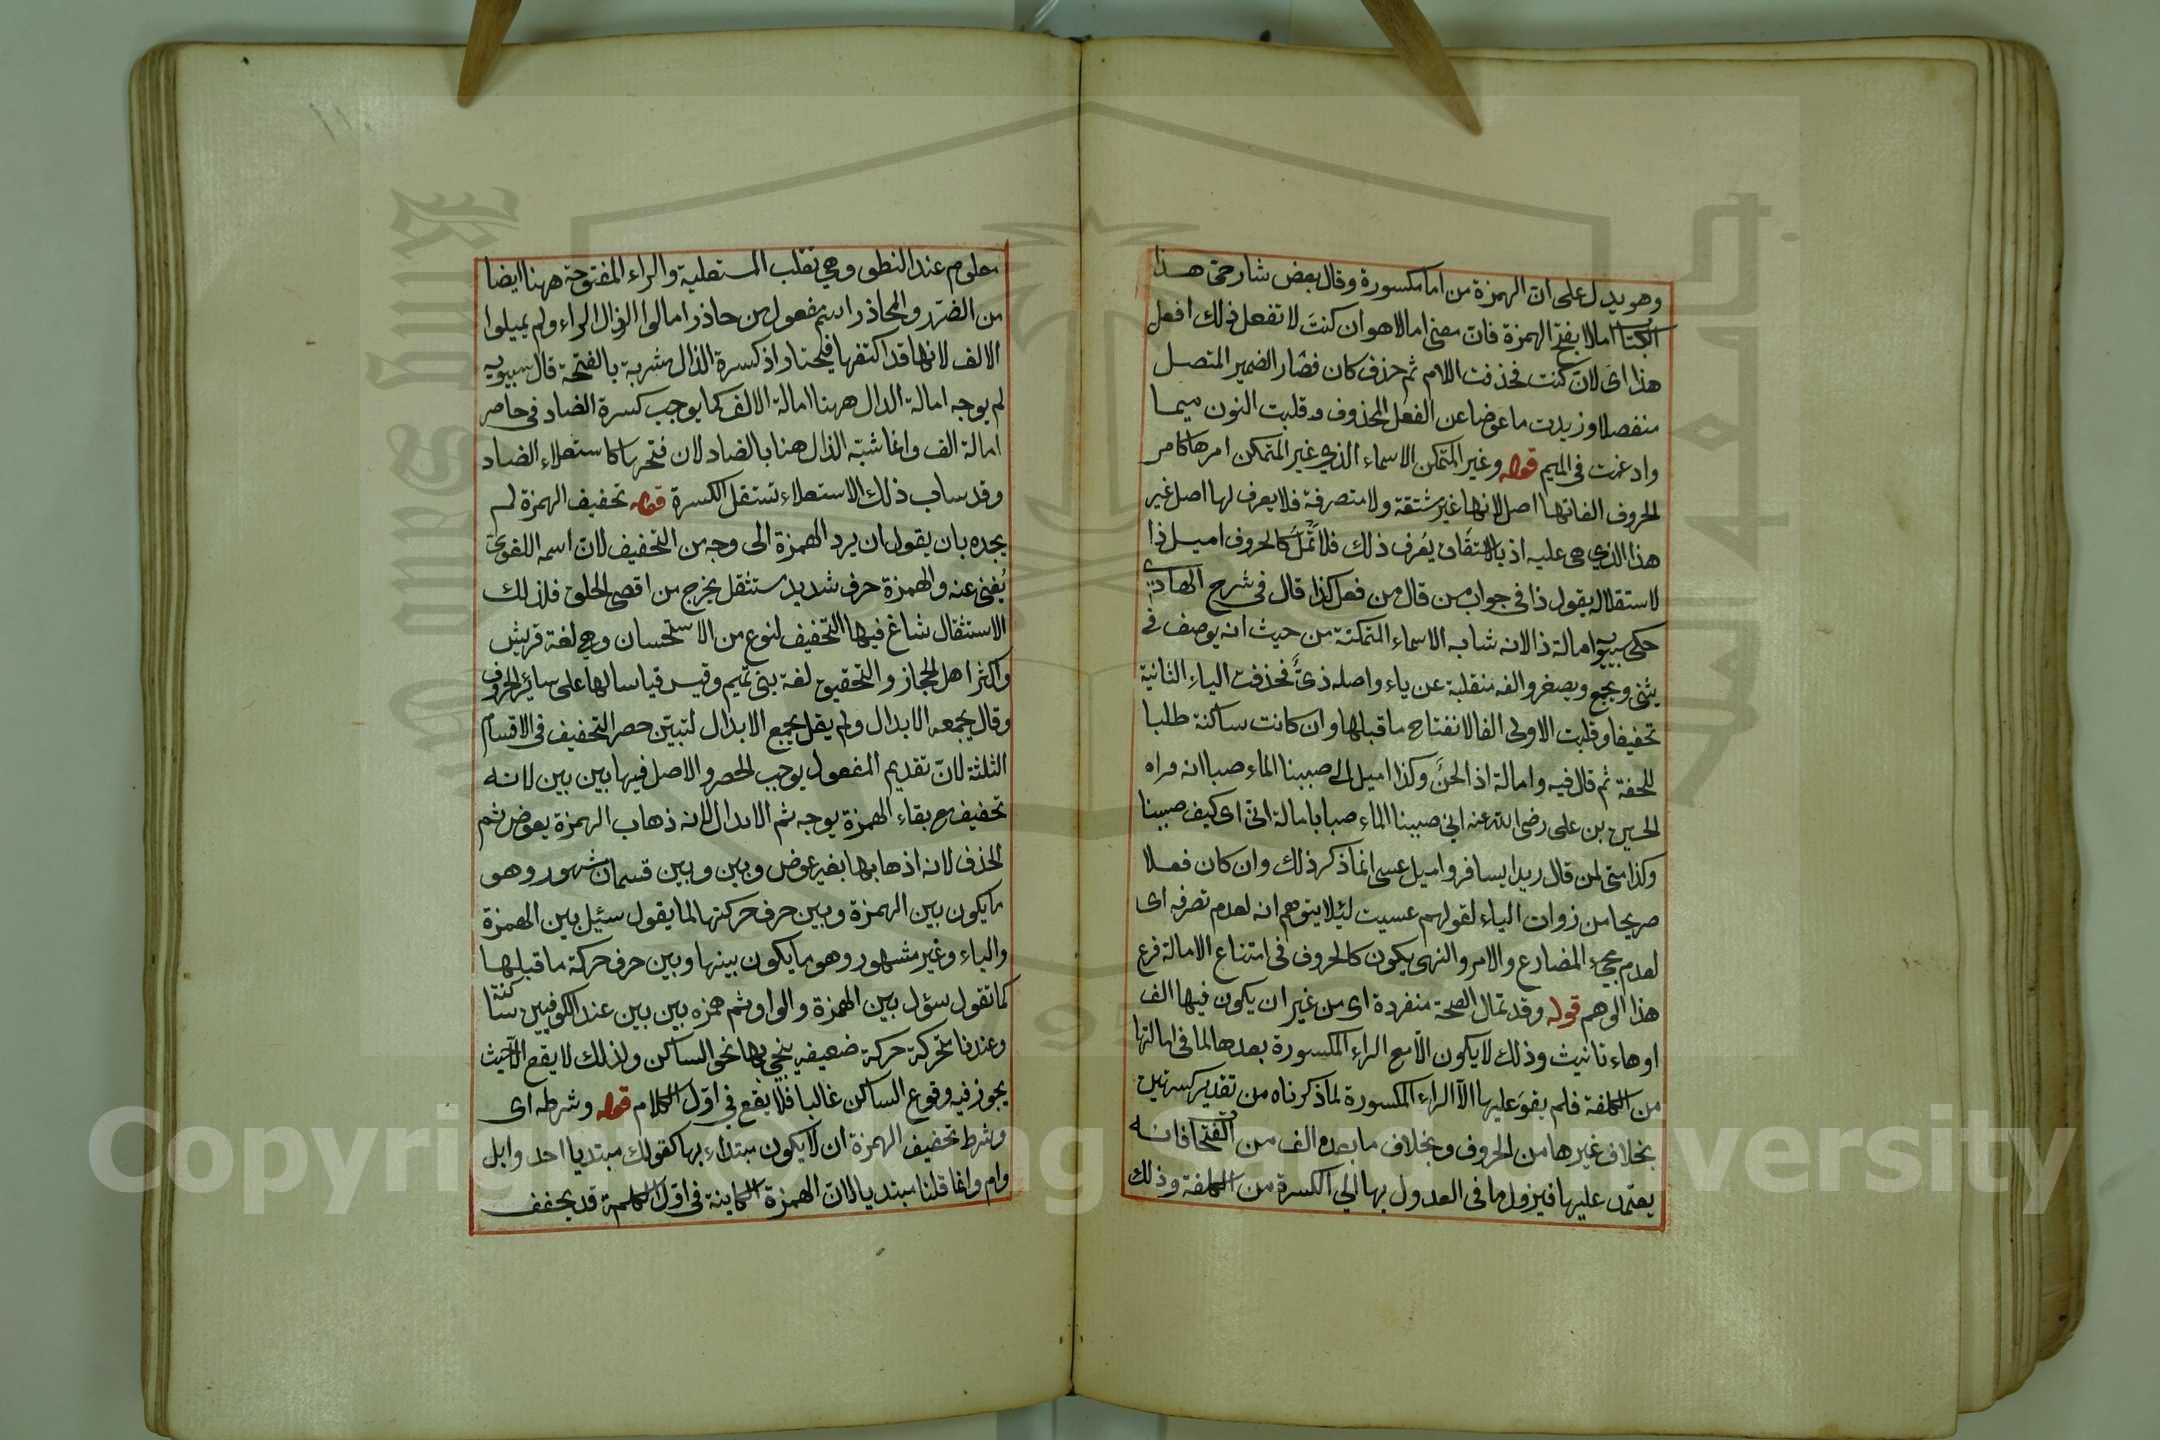 وهو يدل على ان الهمزة من اما مكسورة وقال بعض شارحى هذا
الكتاب املا بفتح الهمزة فان معنى امالا هو ان كنت لا تفعل ذلك افعل
هذا اى لان كنت فحذفت اللام ثم حذف كان فصار الضمير المتصل
منفصلا وزيدت ما عوضا عن الفعل المحذوف وقلبت النون ميما
وادغمت في الميم قوله وغير المتمكن الاسماء الذي غير المتمكن امرها كامر
الحروف الفاتها اصل لانها غير مشتقة ولا متصرفة فلا يعرف لها اصل غير
هذا الذي هى عليه اذ بالاشتقاق يعرف ذلك فلا تمل كالحروف اميل ذا
لاستقلاله يقول ذا في جواب من قال من فعل كذا قال في شرح الهادي
حكى سيبويه امالة ذا لانه شابه الاسماء المتمكنة من حيث انه يوصف في
يثنى ويجمع ويصغر والفه منقلبة عن ياء واصله ذي فحذفت الياء الثانية
تخفيفا وقلبت الاولى الفا لانفتاح ما قبلها وان كانت ساكنة طلبا
للخفة ثم قال فيه وامالة اذ الحن وكذا اميل الى صببنا الماء صبا انه قراه
الحسين بن على رضى الله عنه اني صببنا الماء صبا بامالة انى اى كيف صببنا
وكذا متى لمن قال زيد ايسافر واميل عسى انما ذكر ذلك وان كان فعلا
صريحا من ذوات الياء لقولهم عسيت لئلا يتوهم انه لعدم تصرفه اى
لعدم مجيء المضارع والامر والنهى يكون كالحروف في امتناع الامالة فرع
هذا الوهم قوله وقد تمال الصحة منفردة اى من غير ان يكون فيها الف
اوهاء تانيث وذلك لا يكون الا مع الراء المكسورة بعدها لما في امالتها
من الكلفة فلم يقو عليها الا الراء المكسورة لما ذكرناه من تقدير كسرتين
بخلاف غيرها من الحروف وبخلاف ما بعده الف من الفتحا فانه
يعتمد عليها فيزول ما في العدول بها الى الكسرة من الكلفة وذلك
معلوم عند النطق وهي تقلب المستعلية والراء المفتوحة ههنا ايضا
من الضرر والمحاذر اسم مفعول من حاذر امالوا الذال الراء ولم يميلوا
الالف لانها قد اكتنفها فتحتا واذ كسرة الذال مشربة بالفتحة قال سيبويه
لم يوجه امالة الدال ههنا امالة الالف كما يوجب كسرة الضاد في حاضر
امالة الف وانما شبه الذال هنا بالضاد لان فتحها كاستعلاء الضاد
وقد ساب ذلك الاستعلاء تستقل الكسرة قوله تخفيف الهمزة لم
يحده بان يقول ان يرد الهمزة الى وجه من التخفيف لان اسمه اللغوي
يغنى عنه والهمزة حرف شديد مستثقل يخرج من اقصى الحلق فلذلك
الاستثقال شاغ فيها التخفيف لنوع من الاستحسان وهي لغة قريش
واكثر اهل الحجاز والتحقيق لغة بنى تميم وقيس قياسا لها على سائر الحروف
وقال يجمعه الابدال ولم يقل يجمع الابدال لتبين حصر التخفيف في الاقسام
الثلثة لان تقديم المفعول يوجب الحصر والاصل فيها بين بين لانه
تخفيف مع بقاء الهمزة بوجه ثم الابدال لانه ذهاب الهمزة بعوض ثم
الحذف لانه اذهابها بغير عوض وبين وبين قسمان مشهور وهو
ما يكون بين الهمزة وبين حرف حركتها لما يقول سئيل بين الهمزة
والياء وغير مشهور وهو ما يكون بينها وبين حرف حركة ما قبلها
كما تقول سؤل بين الهمزة والواو ثم همزه بين بين عند الكوفيين ساكنة
وعندنا متحركة حركة ضعيفه ينحي بها نحو الساكن ولذلك لا يقع الا حيث
يجوز فيه وقوع الساكن غالبا فلا يقع في اول الكلام قوله وشرطه اى
وشرط تخفيف الهمزة ان لا يكون مبتداء بها كقولك مبتديا احد وابل
وام وانما قلنا مبتديا لان الهمزة الكاينة في اول الكلمة قد يخفف
Copyright © King Saud University